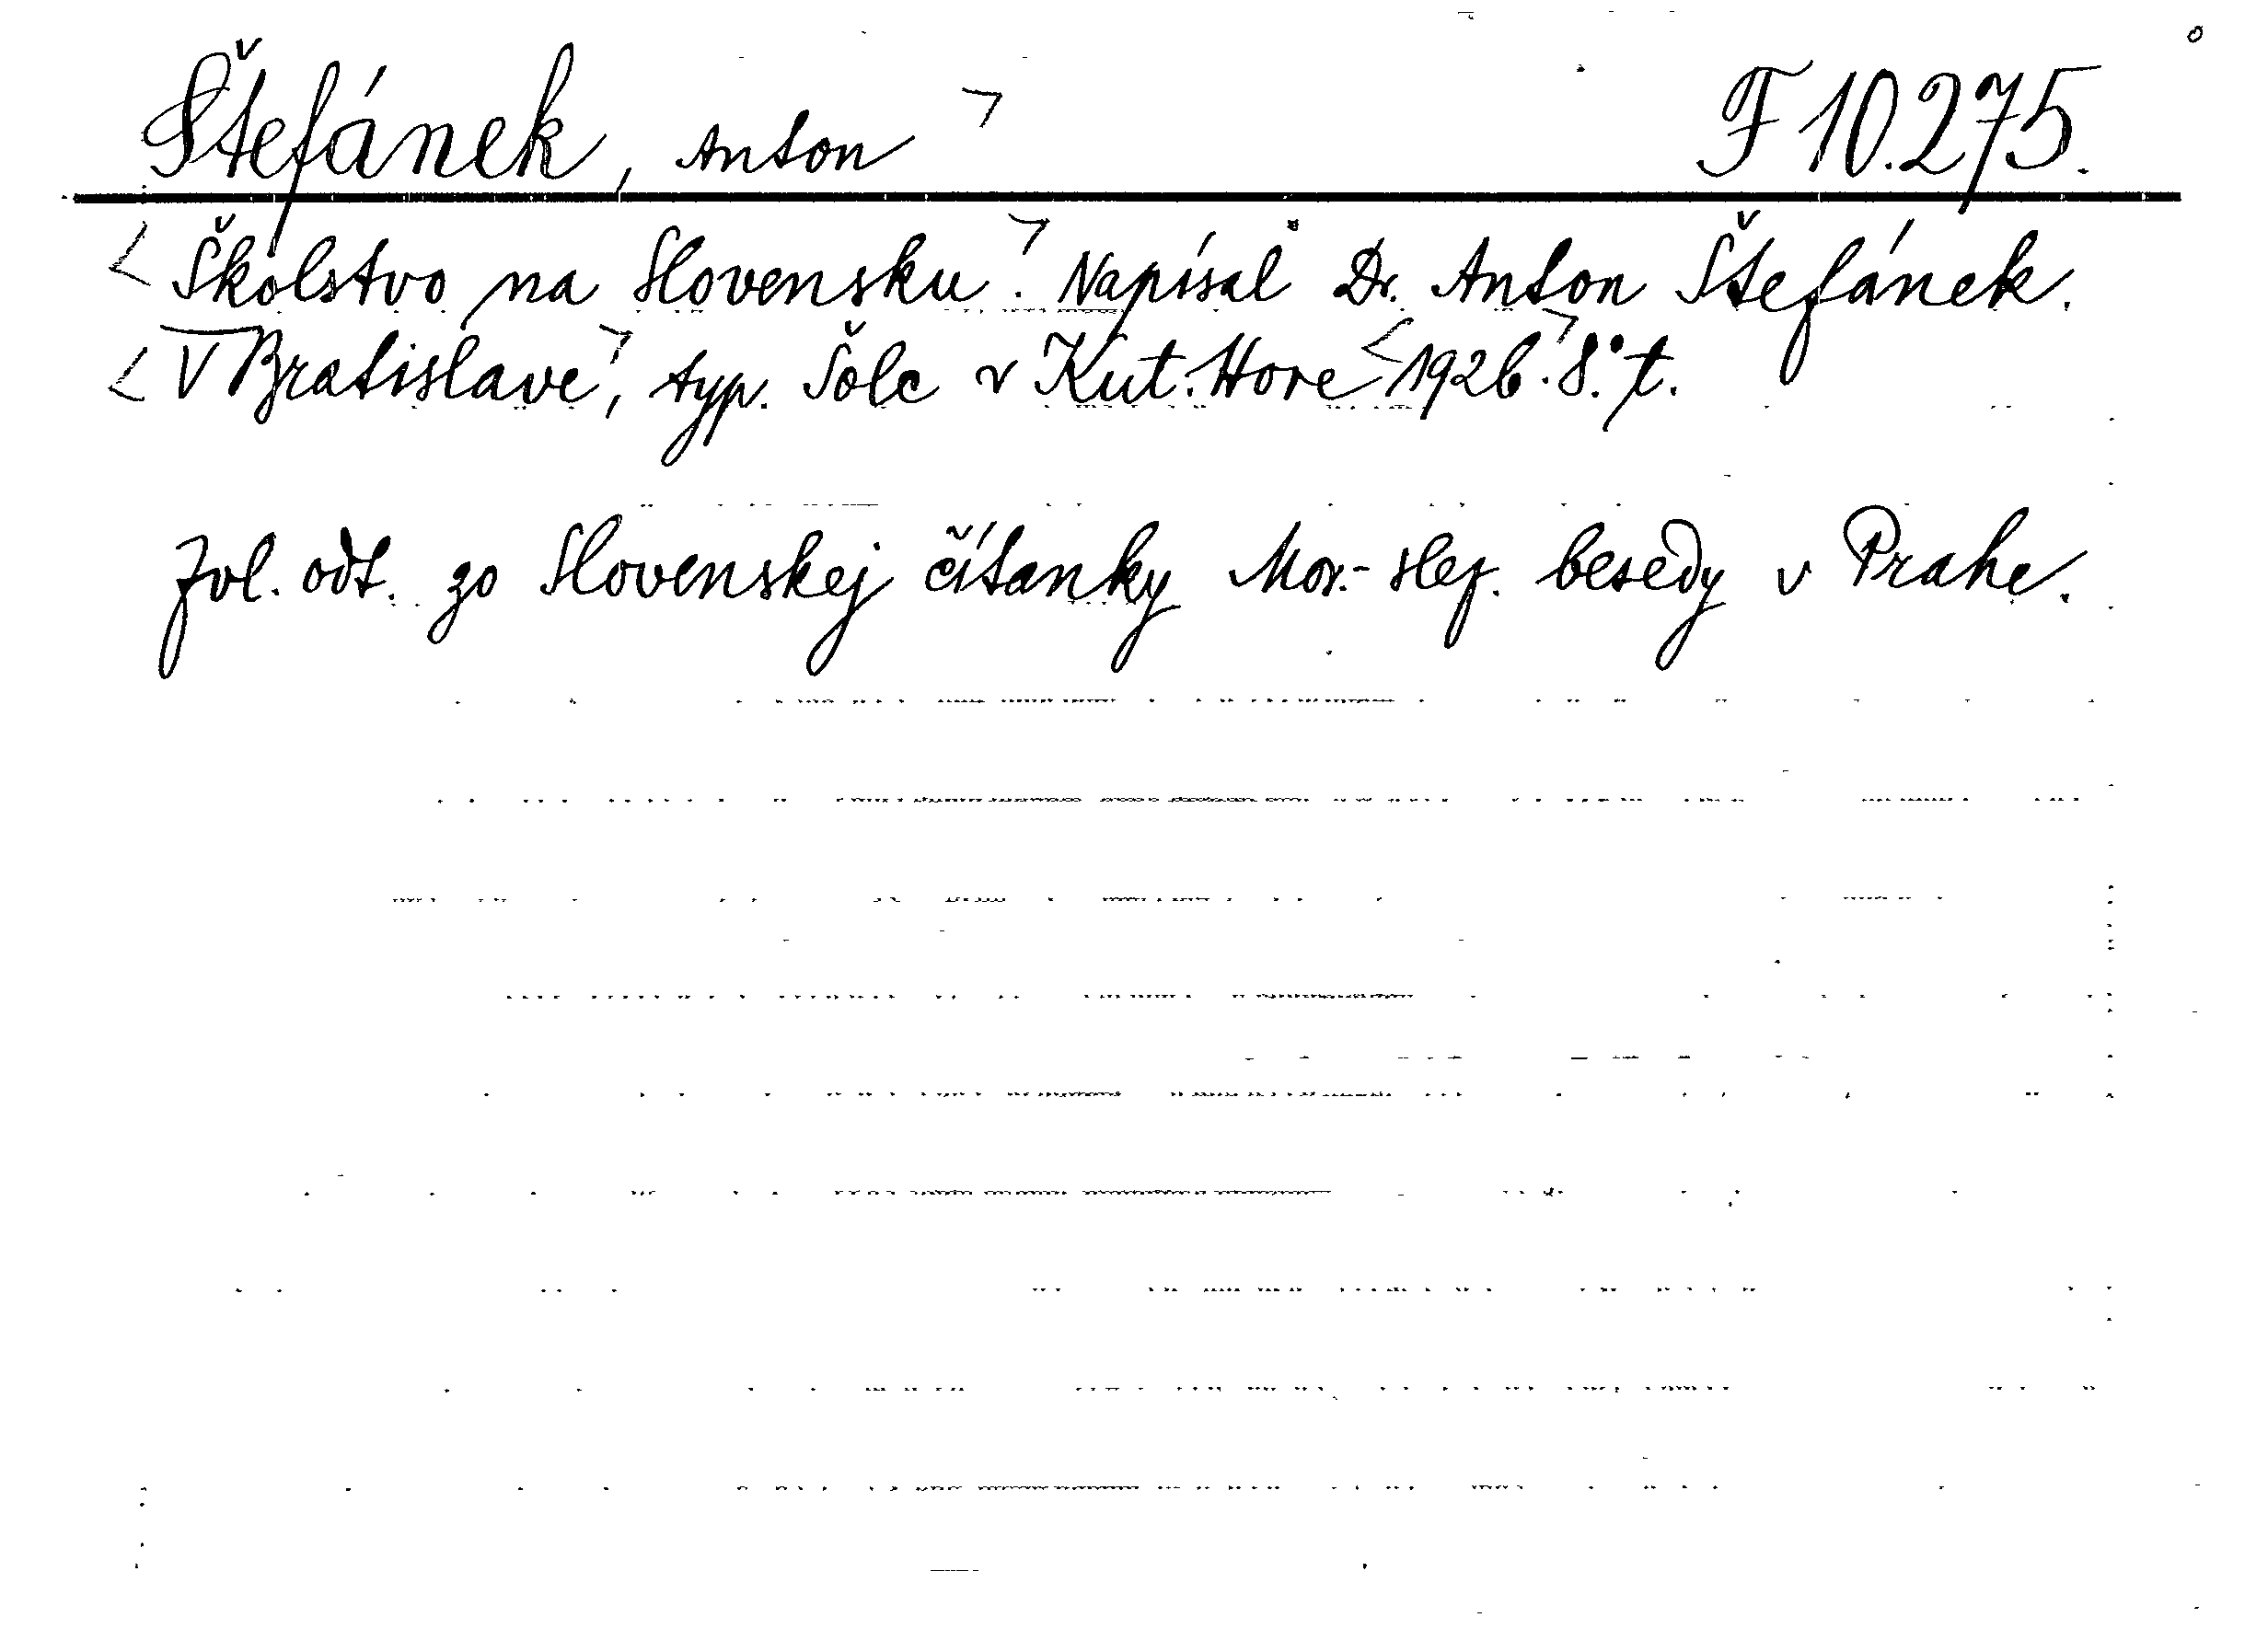 Štefánek, Anton F 10.275.
Školstvo na Slovensku. Napísal Dr. Anton Štefánek.
V Bratislave, typ. Šolc v Kut. Hore 1926. 8°. t.
Zvl. odt. zo Slovenskej čítanky Mor.-slez. besedy v Prahe.